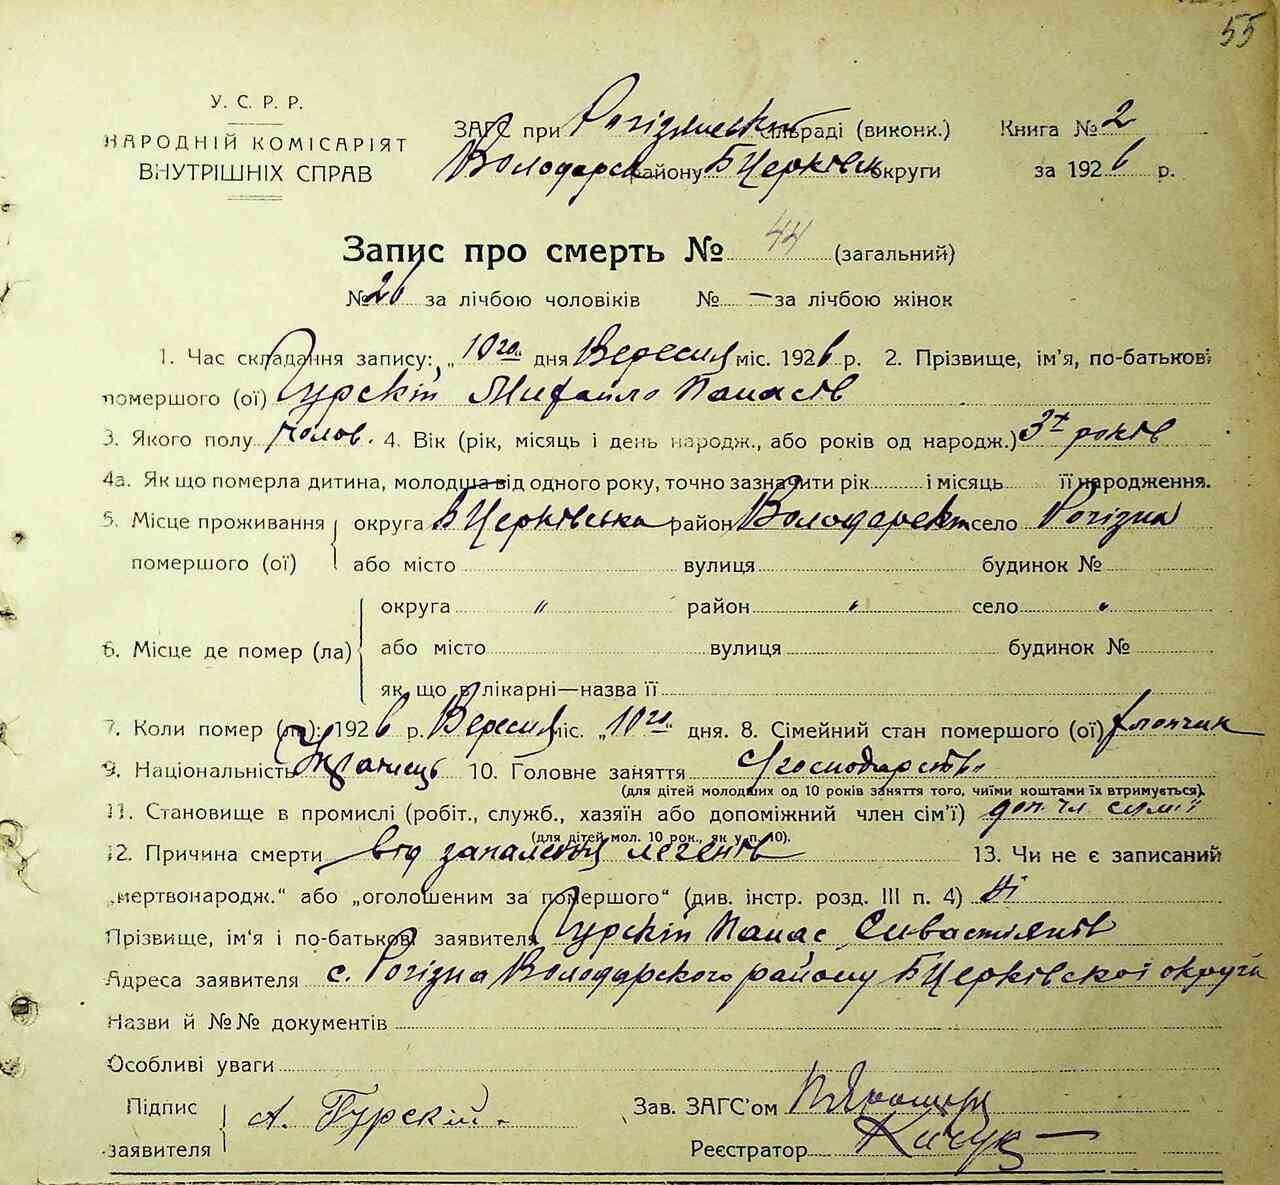 55
У. С. Р. Р.
НАРОДНІЙ КОМІСАРІЯТ
ВНУТРІШНІХ СПРАВ
ЗАГС при Рогізнянській сільраді (виконк.) Книга № 2
Володарськ району Б Церківськ округи за 1926 р.
Запис про смерть № 44 (загальний)
№ 26 за лічбою чоловіків № — за лічбою жінок
1. Час складання запису: „10го“ дня Вересня міс. 1926 р. 2. Прізвище, ім'я, по-батькові
помершого (ої) Гурскій Михайло Панасів
3. Якого полу чолов. 4. Вік (рік, місяць і день народж., або років од народж.) 3х років
4а. Як що померла дитина, молодша від одного року, точно зазначити рік і місяць її народження.
5. Місце проживання помершого (ої) округа Б Церківська район Володарскій село Рогізна
або місто вулиця будинок №
6. Місце де помер (ла) округа " район " село "
або місто вулиця будинок №
як що в лікарні—назва її
7. Коли помер (ла): 1926 р. Вересня міс. „10го“ дня. 8. Сімейний стан помершого (ої) хлопчик
9. Національність Українець 10. Головне заняття господарств
(для дітей молодших од 10 років заняття того, чиїми коштами їх втримується).
11. Становище в промислі (робіт., служб., хазяїн або допоміжний член сім'ї) доп чл сімї
(для дітей мол. 10 рок., як у п. 10).
12. Причина смерти від запаления легенів 13. Чи не є записаний
„мертвонародж.“ або „оголошеним за помершого“ (див. інстр. розд. III п. 4) Ні
Прізвище, ім'я і по-батькові заявителя Гурскій Панас Сивастіянів
Адреса заявителя с. Рогізна Володарского району Б Церківскої округи
Назви й №№ документів
Особливі уваги
Підпис заявителя А. Гурскій. Зав. ЗАГС'ом
Реєстратор Кичук